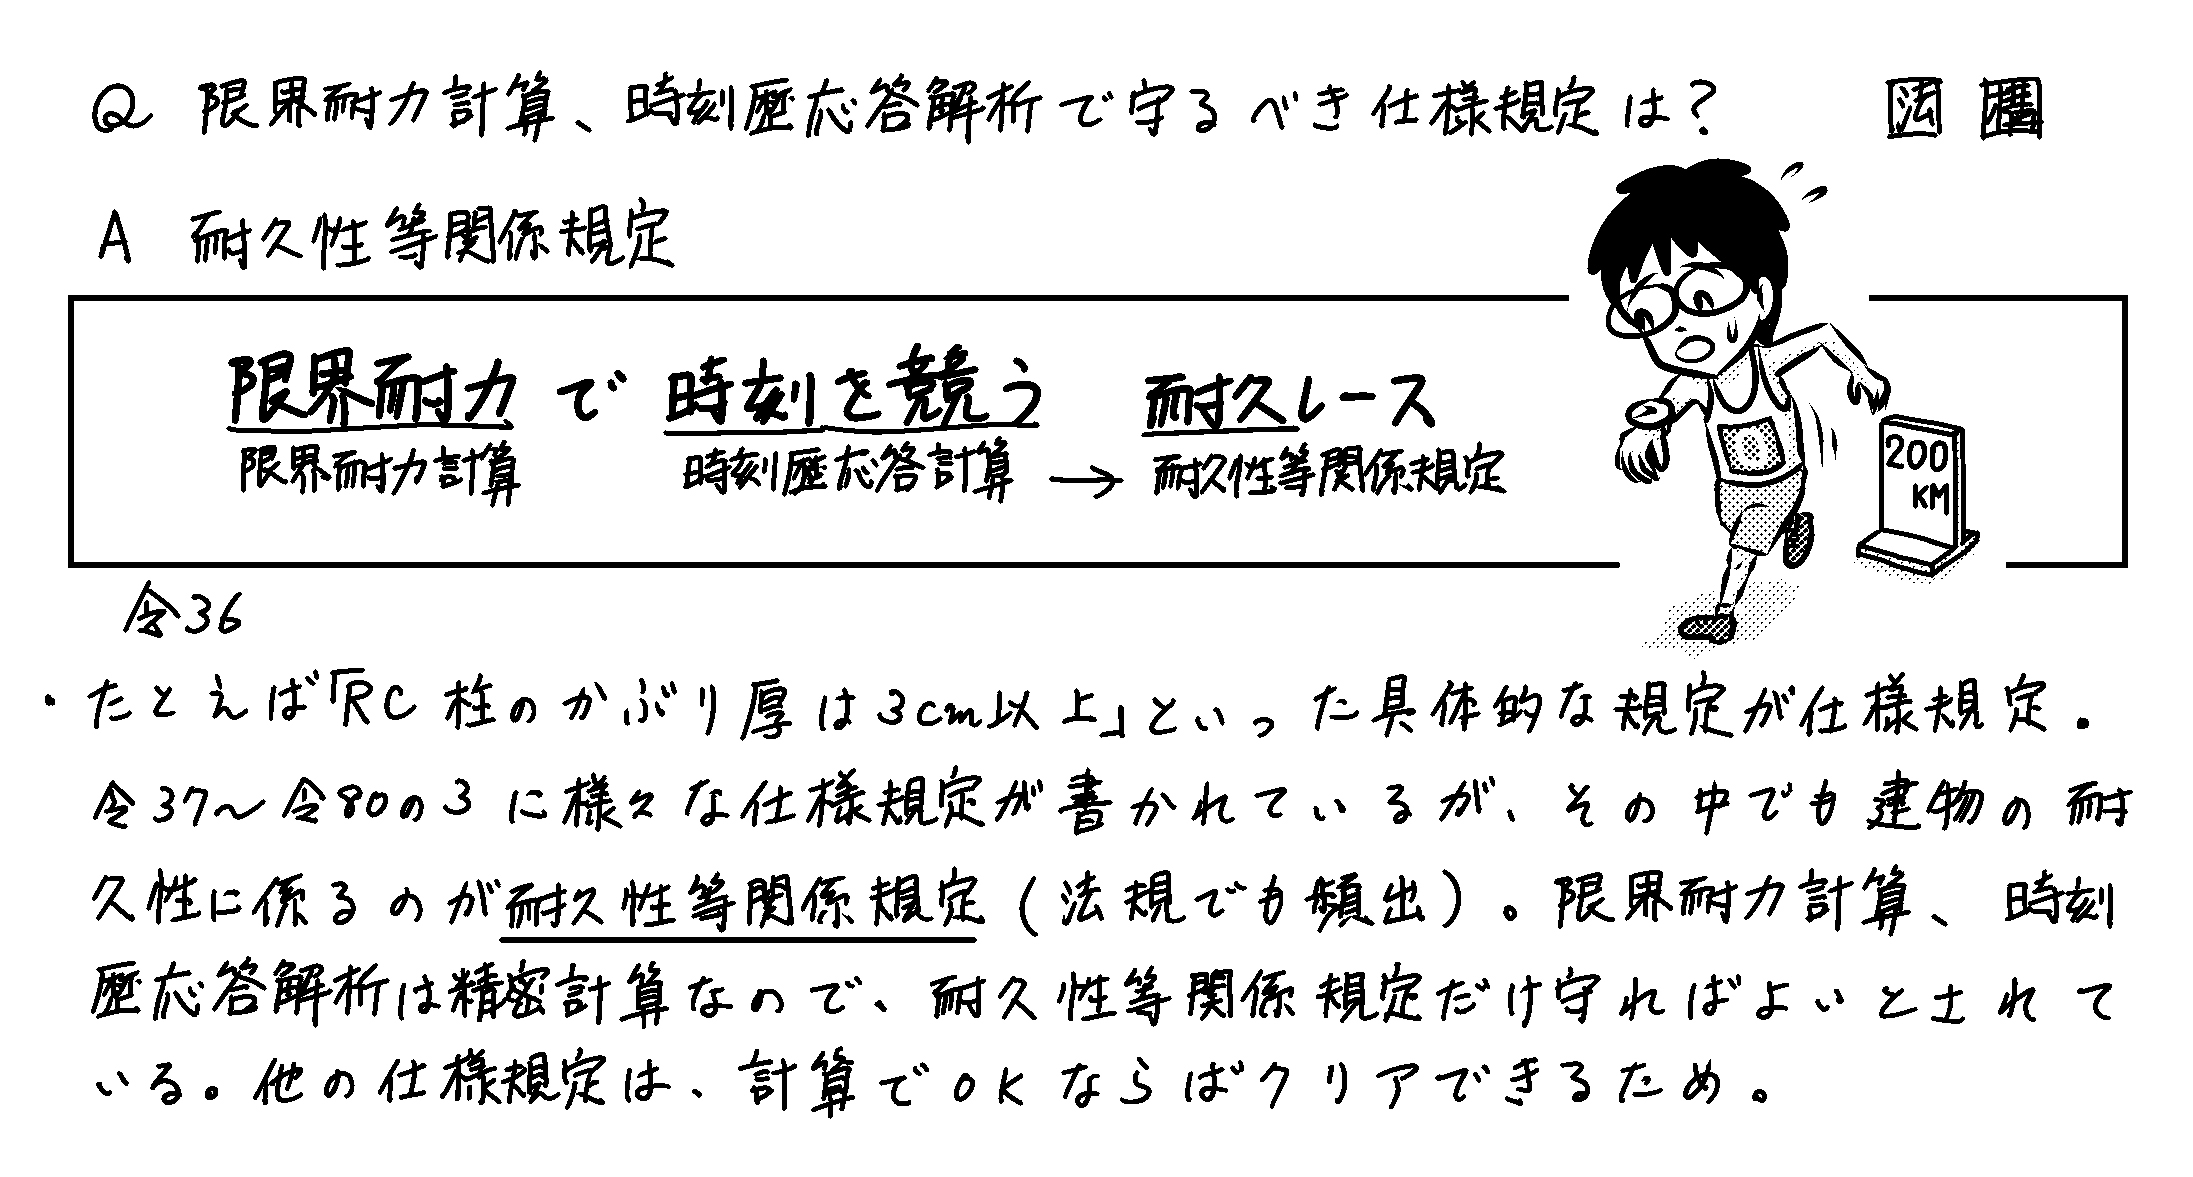 Q 限界耐力計算、時刻歴応答解析で守るべき仕様規定は? 法 構
A 耐久性等関係規定
限界耐力で時刻を競う 耐久レース
限界耐力計算 時刻歴応答計算 → 耐久性等関係規定
200
KM
令36
・たとえば「RC柱のかぶり厚は3cm以上」といった具体的な規定が仕様規定.
令37〜令80の3に様々な仕様規定が書かれているが、その中でも建物の耐
久性に係るのが耐久性等関係規定(法規でも頻出)。限界耐力計算、時刻
歴応答解析は精密計算なので、耐久性等関係規定だけ守ればよいとされて
いる。他の仕様規定は、計算でOKならばクリアできるため。